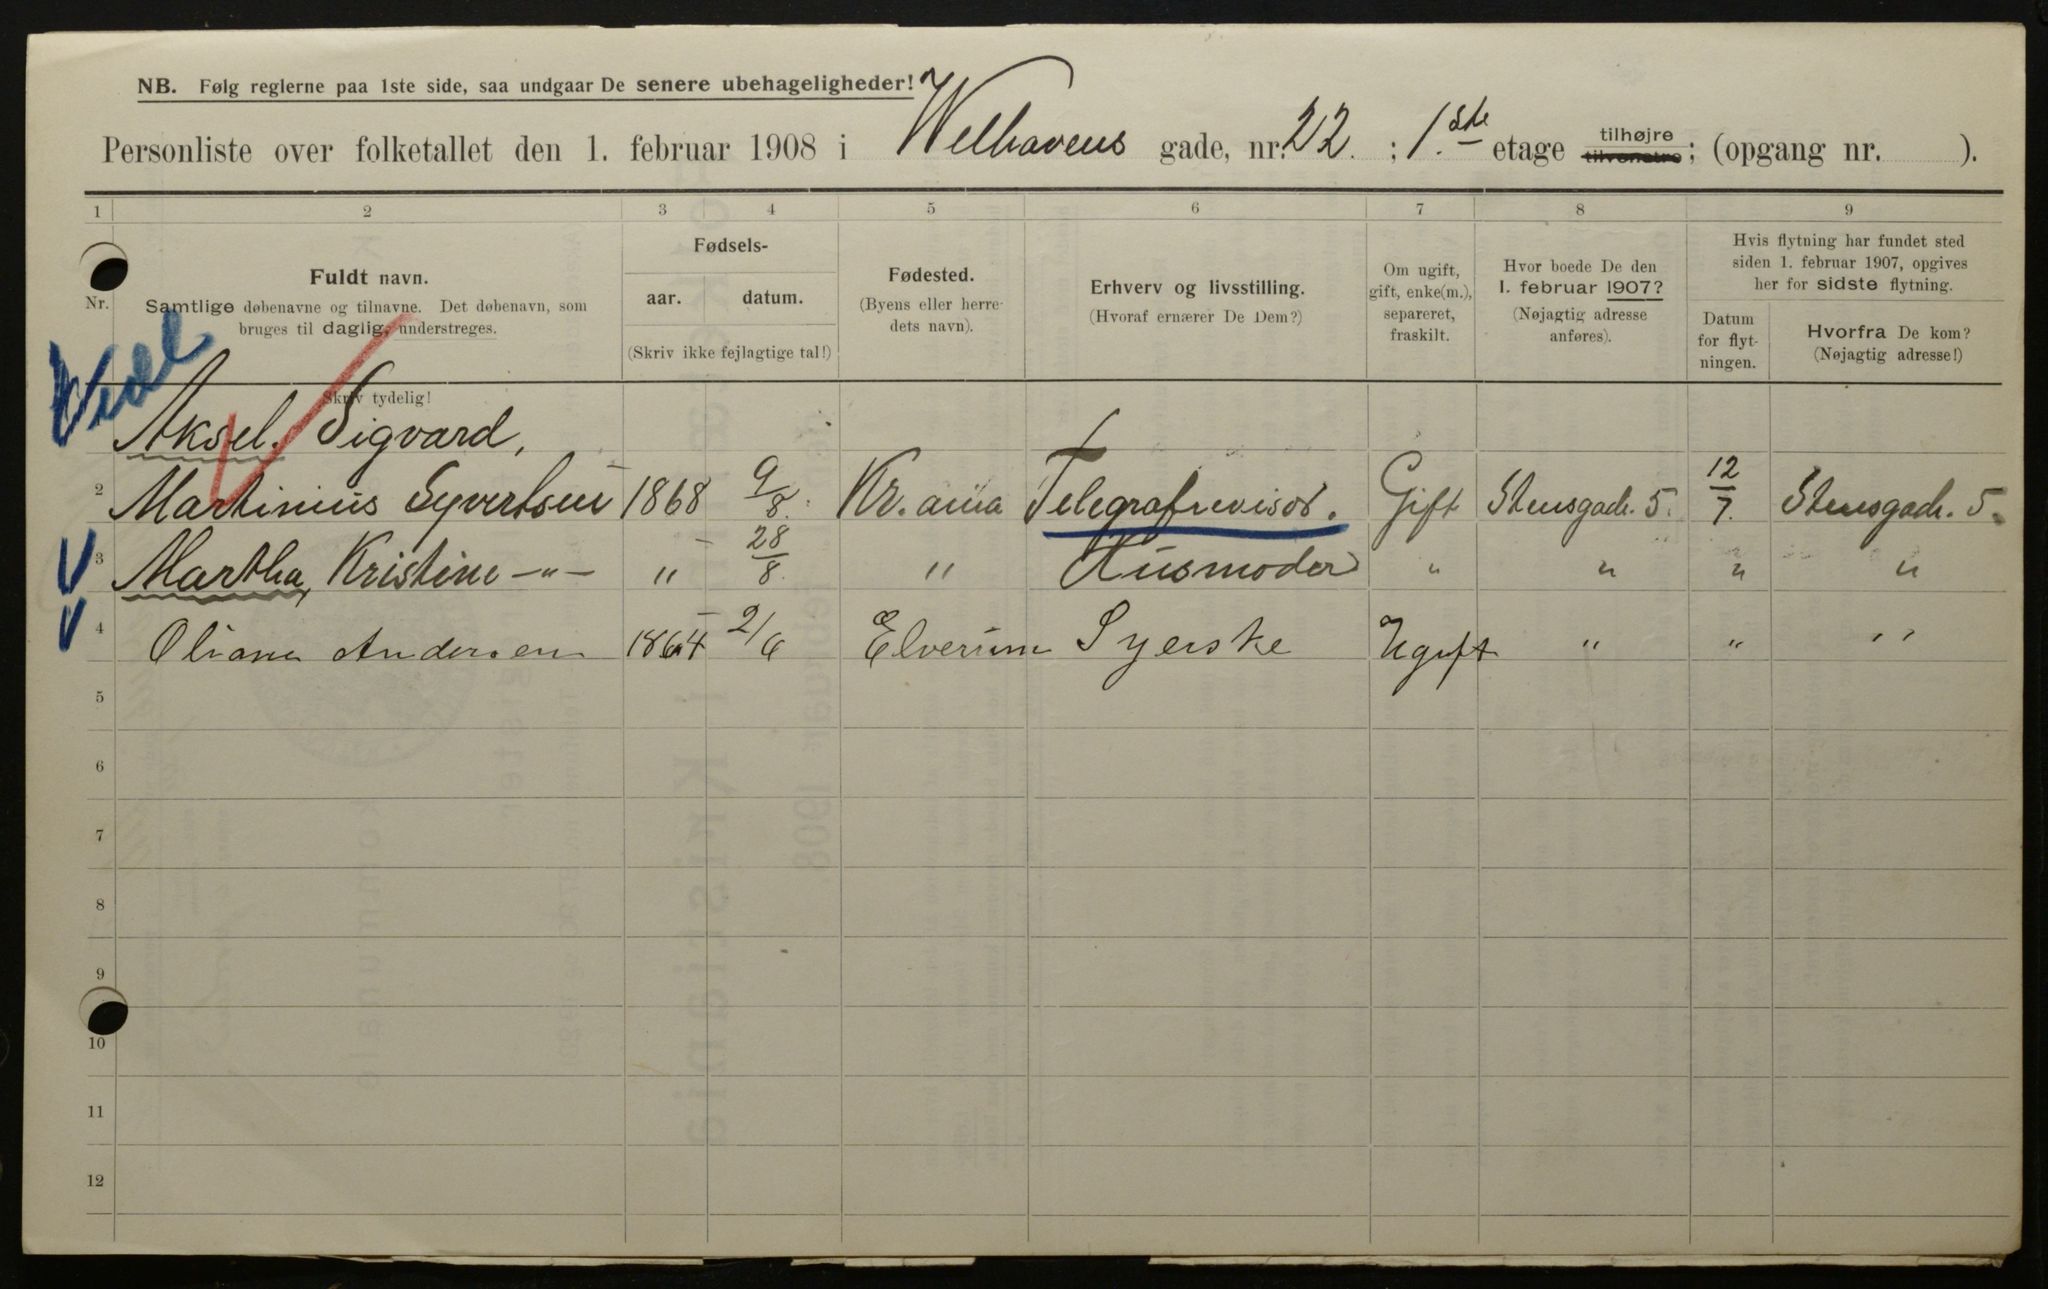 NB. Følg reglerne paa 1ste side, saa undgaar De senere ubehageligheder!
Personliste over folketallet den 1. februar 1908 i Welhavens gade, nr. 22. ; 1.ste etage tilhøjre tilvenstre; (opgang nr. ).
1 2 3 4 5 6 7 8 9
Nr.
Fuldt navn.
Samtlige døbenavne og tilnavne. Det døbenavn, som
bruges til daglig, understreges.
Skriv tydelig!
Fødsels-
aar. datum.
(Skriv ikke fejlagtige tal!)
Fødested.
(Byens eller herre-
dets navn).
Erhverv og livsstilling.
(Hvoraf ernærer De Dem?)
Om ugift,
gift, enke(m.),
separeret,
fraskilt.
Hvor boede De den
1. februar 1907?
(Nøjagtig adresse
anføres).
Hvis flytning har fundet sted
siden 1. februar 1907, opgives
her for sidste flytning.
Datum
for flyt-
ningen.
Hvorfra De kom?
(Nøjagtig adresse!)
Aksel. Sigvard,
2 Martinius Syvertsen 1868 9/8. Kr.ania Telegrafrevisor. Gift Stensgadr. 5. 12/7. Stensgadr. 5.
3 Martha, Kristine -„- „ 28/8. „ Husmoder „ „ „ „
4 Oliana Andersen 1864 2/6 Elverum Syerske Ugift „ „ „
5
6
7
8
9
10
11
12